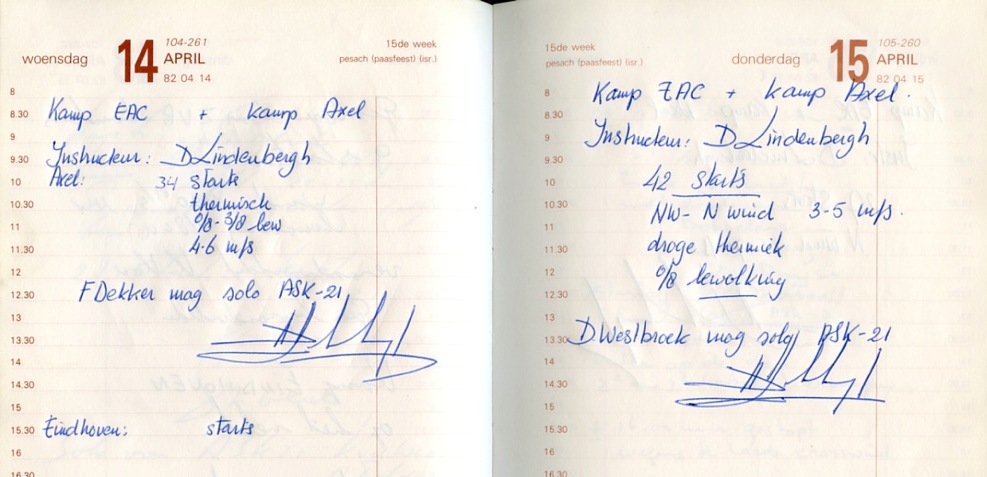 woensdag 14 104-261
APRIL
82 04 14
15de week
pesach (paasfeest) (isr.)
8
8.30 Kamp EAC + Kamp Axel
9
9.30 Instructeur: D Lindenbergh
10 Axel: 34 starts
10.30 thermisch
11 0/8-3/8 bew
11.30 4-6 m/s
12
12.30 F Dekker mag solo ASK-21
13
13.30
14
14.30
15
15.30 Eindhoven: starts
16
16.30
15de week
pesach (paasfeest) (isr.)
donderdag 15 105-260
APRIL
82 04 15
8 Kamp EAC + Kamp Axel.
8.30
9 Instructeur: D Lindenbergh
9.30
10 42 starts
10.30 NW-N wind 3-5 m/s.
11
11.30 droge thermiek
12 0/8 bewolking
12.30
13
13.30 D. Westbroek mag solo ASK-21
14
14.30
15
15.30
16
16.30